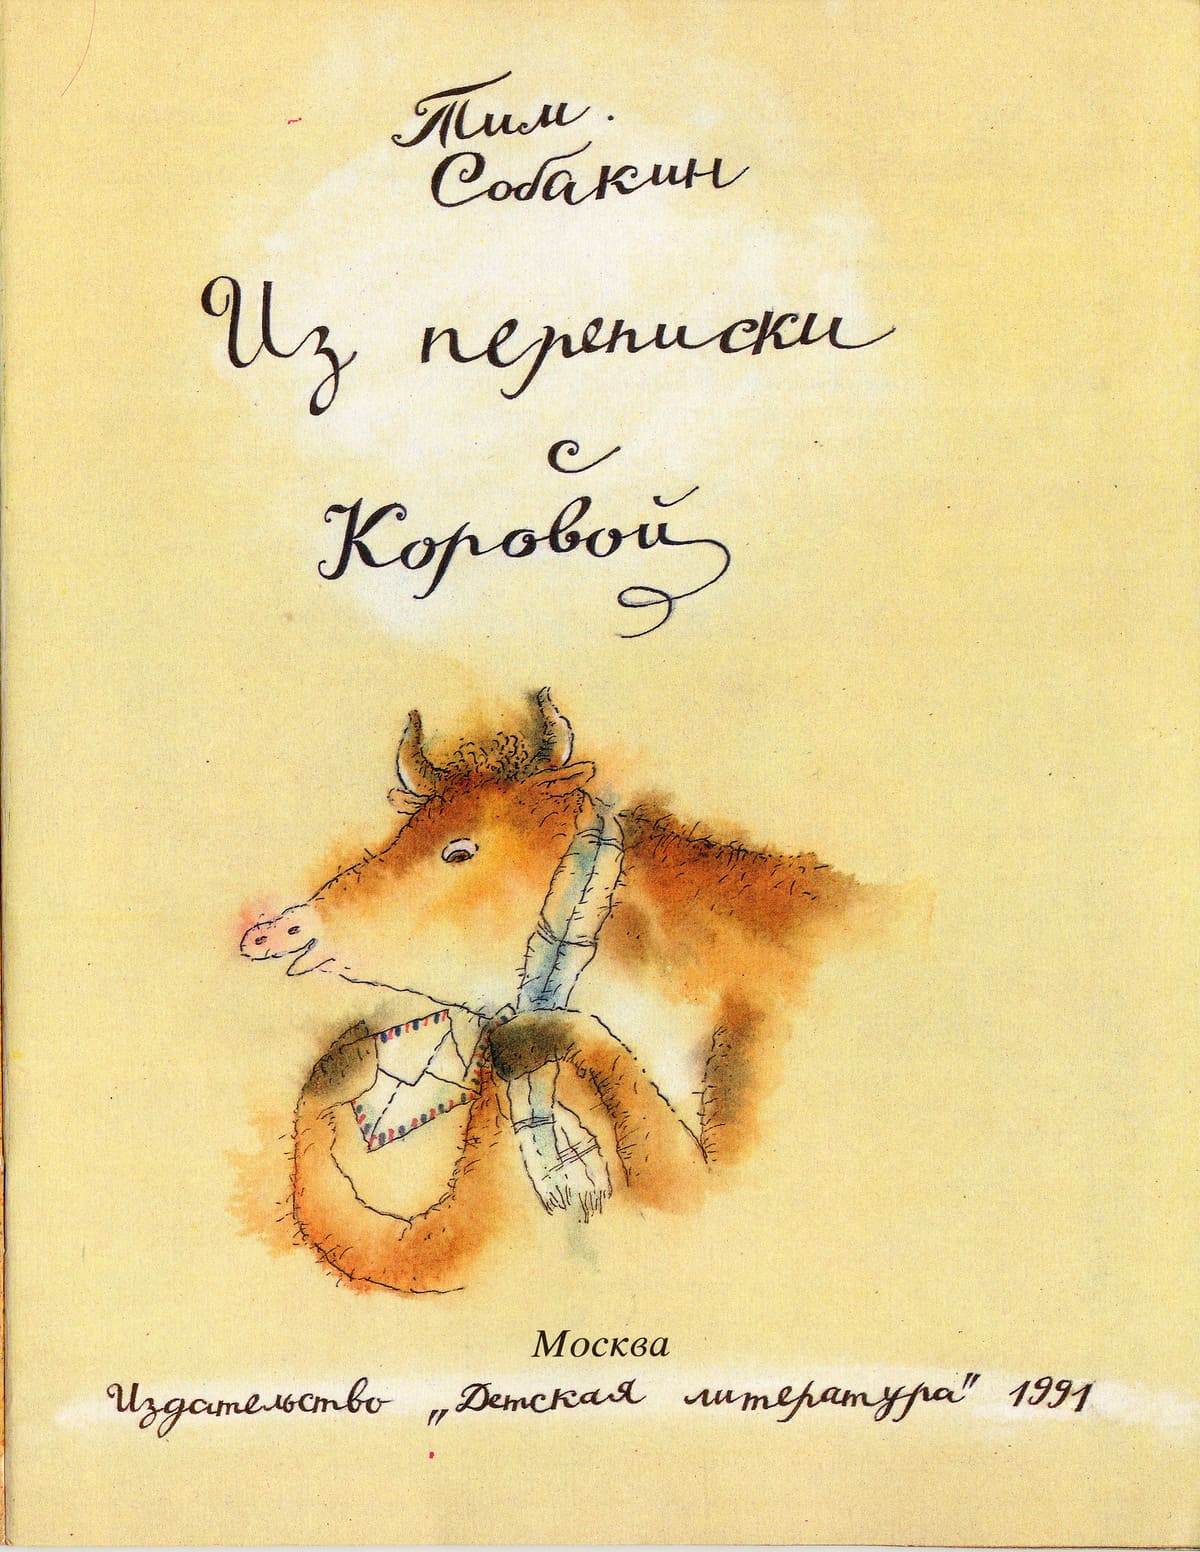 Тим.
Собакин
Из переписки
с
Коровой
Москва
Издательство „Детская литература" 1991